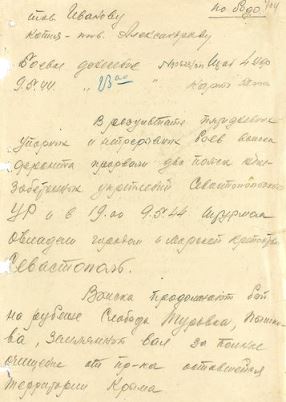 тов. Иванову
по Бодо
Копия - тов. Александрову
Боевое донесение 4 УФ
9.5.44. Карта
В результате трехдневных
упорных и непрерывных боев войска
фронта прорвали две полосы
железобетонных укреплений Севастопольского
УР и в 19.00 9.5.44 штурмом
овладели городом и морской крепостью
Севастополь.
Войска продолжают бой
на рубеже Слобода Турьева,
ва, Земляной вал за полное
очищение от пр-ка оставшейся
территории Крыма